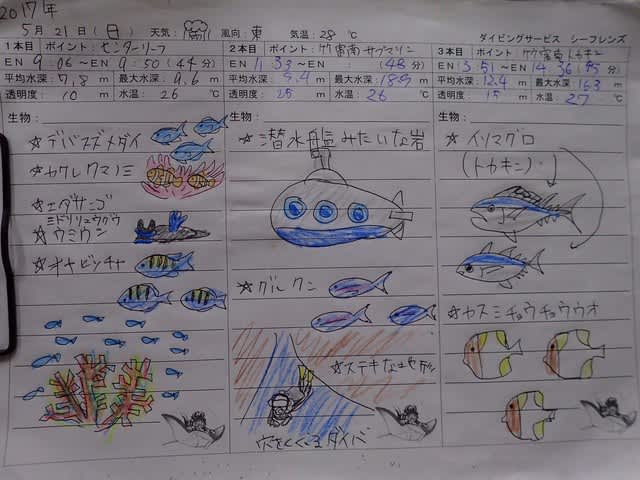 2017年
5月 21日 (日) 天気: 風向: 東 気温: 28 ℃ ダイビングサービス シーフレンズ
1本目 ポイント: センターリーフ
EN 9:06 ~ EN 9:50 (44分)
平均水深: 7.8 m 最大水深: 9.6 m
透明度: 10 m 水温: 26 ℃
生物:
☆デバスズメダイ
☆カクレクマノミ
☆エダサンゴ
ミドリリュウグウ
☆ウミウシ
☆オヤビッチャ
2本目 ポイント: 竹富南サブマリン
EN 11:33 ~ EN : (48分)
平均水深: m 最大水深: m
透明度: 25 m 水温: 26 ℃
生物:
☆潜水艦みたいな岩
☆グルクン
☆ステキな地形
穴をくぐるダイバー
3本目 ポイント: 竹富東トカキン
EN 13:51 ~ EN 14:36 (45分)
平均水深: 12.4 m 最大水深: 16.3 m
透明度: 15 m 水温: 27 ℃
生物:
☆イソマグロ
(トカキン)
☆カスミチョウチョウウオ